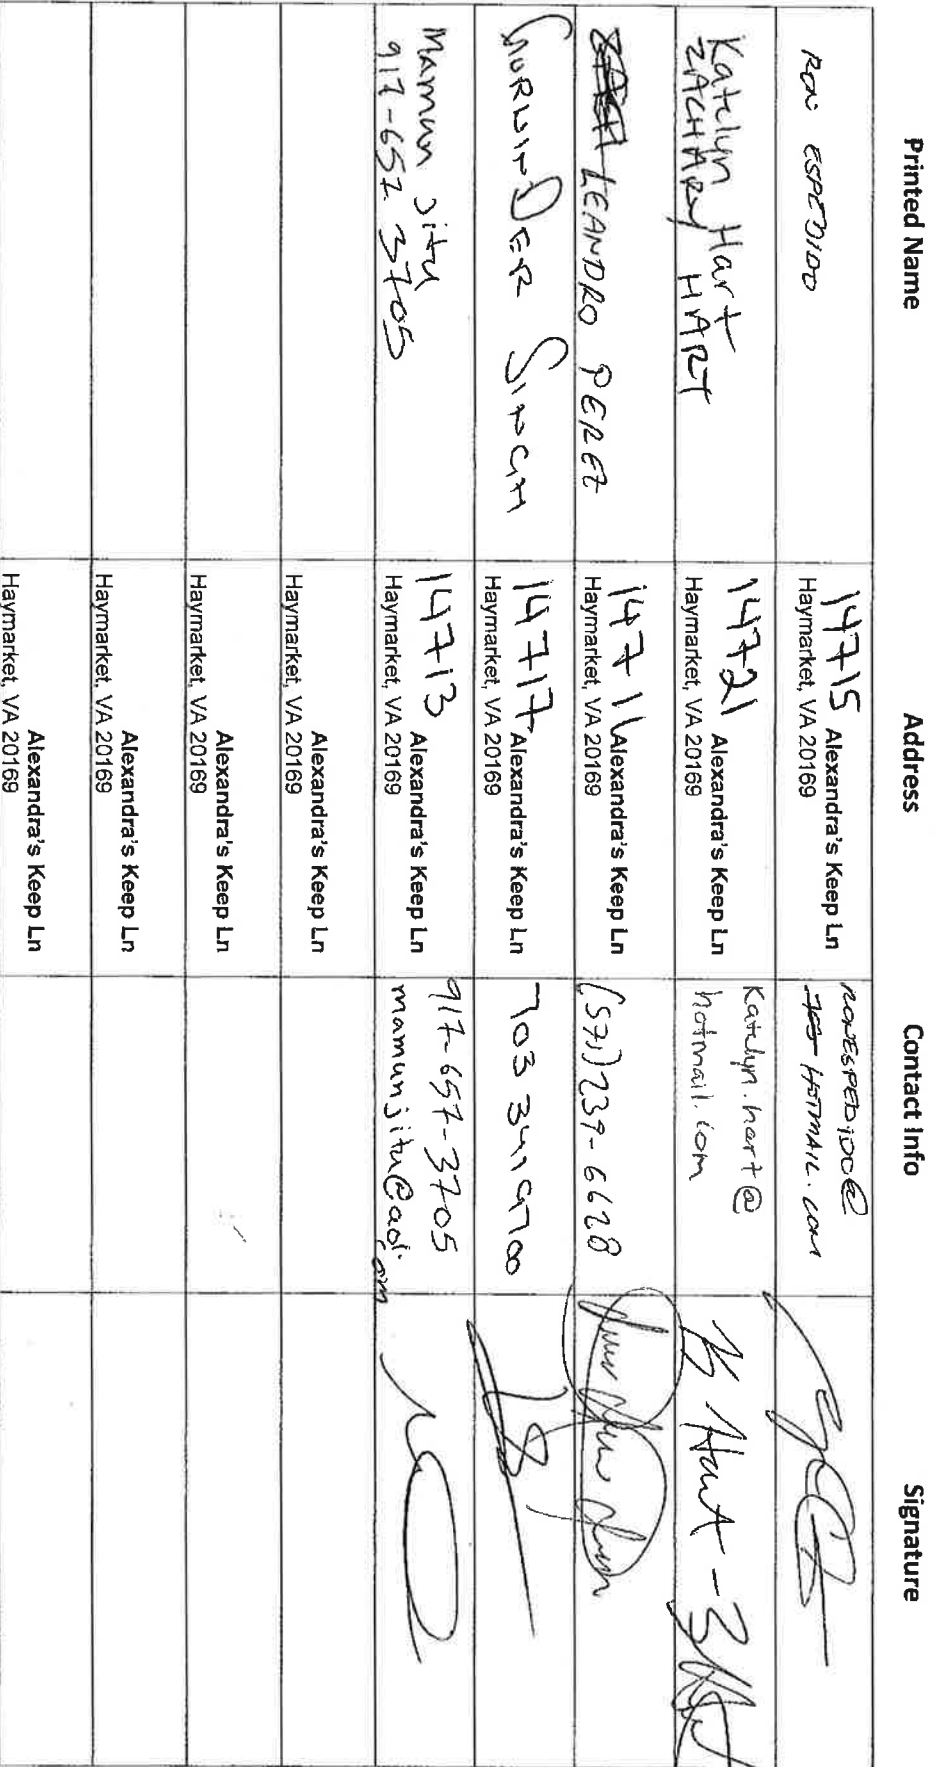 Printed Name
Address
Contact Info
Signature
RON ESPEDIDO
14715 Alexandra's Keep Ln
Haymarket, VA 20169
RONESPEDIDO@
HOTMAIL.COM
Katelyn Hart
ZACHARY HART
14721 Alexandra's Keep Ln
Haymarket, VA 20169
Katelyn.hart@
hotmail.com
K Hart -
LEANDRO PEREZ
14711 Alexandra's Keep Ln
Haymarket, VA 20169
(571)239-6628
GURWINDER SINGH
14717 Alexandra's Keep Ln
Haymarket, VA 20169
703 341 9700
Mamun jitu
917-657 3705
14713 Alexandra's Keep Ln
Haymarket, VA 20169
917-657-3705
mamunjitu@aol.com
Alexandra's Keep Ln
Haymarket, VA 20169
Alexandra's Keep Ln
Haymarket, VA 20169
Alexandra's Keep Ln
Haymarket, VA 20169
Alexandra's Keep Ln
Haymarket, VA 20169